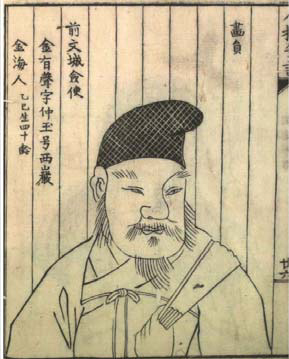 畵員
前文城僉使
金有聲字仲玉号西巖
金海人 乙巳生四十齡